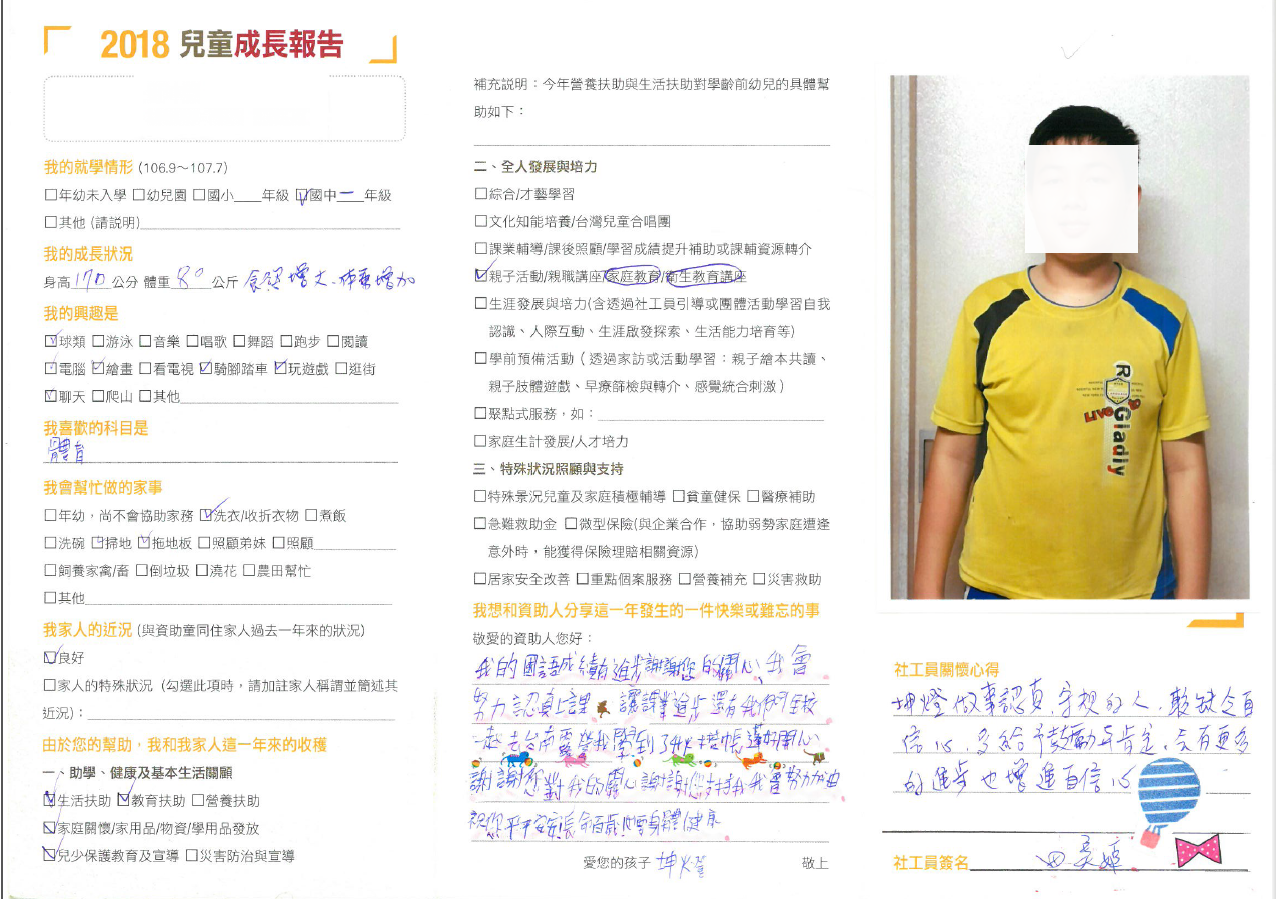 2018 兒童成長報告
我的就學情形 (106.9～107.7)
□年幼未入學 □幼兒園 □國小____年級 ☑國中一年級
□其他 (請說明)
我的成長狀況
身高170公分 體重80公斤 食慾增大、体重增加
我的興趣是
☑球類 □游泳 □音樂 □唱歌 □舞蹈 □跑步 □閱讀
☑電腦 ☑繪畫 □看電視 ☑騎腳踏車 ☑玩遊戲 □逛街
☑聊天 □爬山 □其他
我喜歡的科目是
體育
我會幫忙做的家事
□年幼，尚不會協助家務 ☑洗衣/收折衣物 □煮飯
□洗碗 ☑掃地 ☑拖地板 □照顧弟妹 □照顧
□飼養家禽/畜 □倒垃圾 □澆花 □農田幫忙
□其他
我家人的近況 (與資助童同住家人過去一年來的狀況)
☑良好
□家人的特殊狀況 (勾選此項時，請加註家人稱謂並簡述其
近況)：
由於您的幫助，我和我家人這一年來的收穫
一、助學、健康及基本生活關顧
☑生活扶助 ☑教育扶助 □營養扶助
☑家庭關懷/家用品/物資/學用品發放
☑兒少保護教育及宣導 □災害防治與宣導
補充說明：今年營養扶助與生活扶助對學齡前幼兒的具體幫
助如下：
二、全人發展與培力
□綜合/才藝學習
□文化知能培養/台灣兒童合唱團
□課業輔導/課後照顧/學習成績提升補助或課輔資源轉介
☑親子活動/親職講座/家庭教育/衛生教育講座
□生涯發展與培力(含透過社工員引導或團體活動學習自我
認識、人際互動、生涯啟發探索、生活能力培育等)
□學前預備活動（透過家訪或活動學習：親子繪本共讀、
親子肢體遊戲、早療篩檢與轉介、感覺統合刺激）
□聚點式服務，如：
□家庭生計發展/人才培力
三、特殊狀況照顧與支持
□特殊景況兒童及家庭積極輔導 □貧童健保 □醫療補助
□急難救助金 □微型保險(與企業合作，協助弱勢家庭遭逢
意外時，能獲得保險理賠相關資源)
□居家安全改善 □重點個案服務 □營養補充 □災害救助
我想和資助人分享這一年發生的一件快樂或難忘的事
敬愛的資助人您好：
我的國語成績有進步謝謝您的關心我會
努力認真上課 讓課業進步還有我們全校
一起去台南露營我學到了搭帳蓬好開心
謝謝您對我的關心謝謝您支持我我會努力加油
祝您平平安安長命百歲 身體健康
愛您的孩子 坤燈 敬上
Rugged Gladly
社工員關懷心得
坤燈做事認真、守規的人，較缺乏自
信心，多給予鼓勵與肯定，会有更多
的進步也增進自信心
社工員簽名